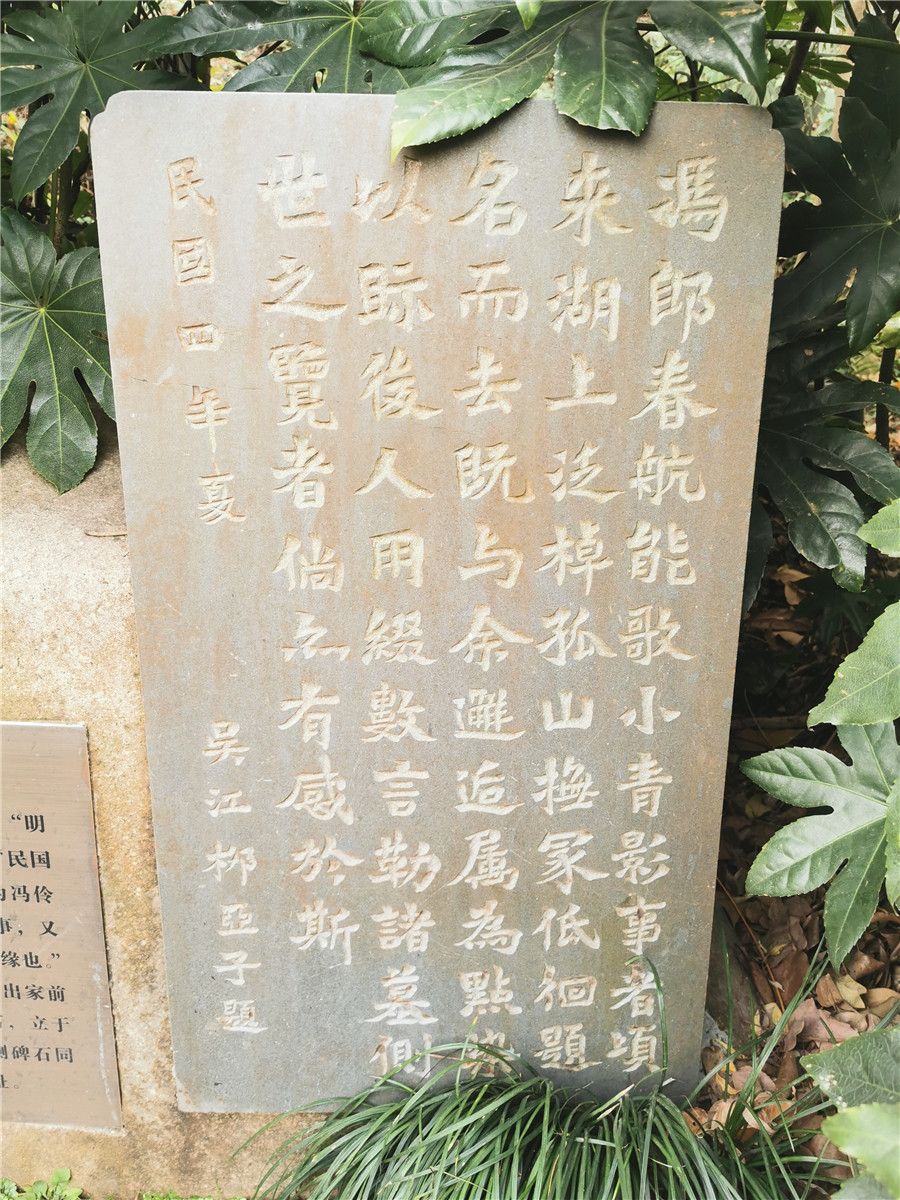 馮郎春航能歌小青影事者頃
来湖上泛棹孤山撫冢低徊題
名而去既与余邂逅属為點染
以眎後人用綴數言勒諸墓側
世之覽者倘亦有感於斯
民國四年夏 吴江柳亞子題
“明
民国
冯伶
事，又
缘也。”
出家前
，立于
碑石同